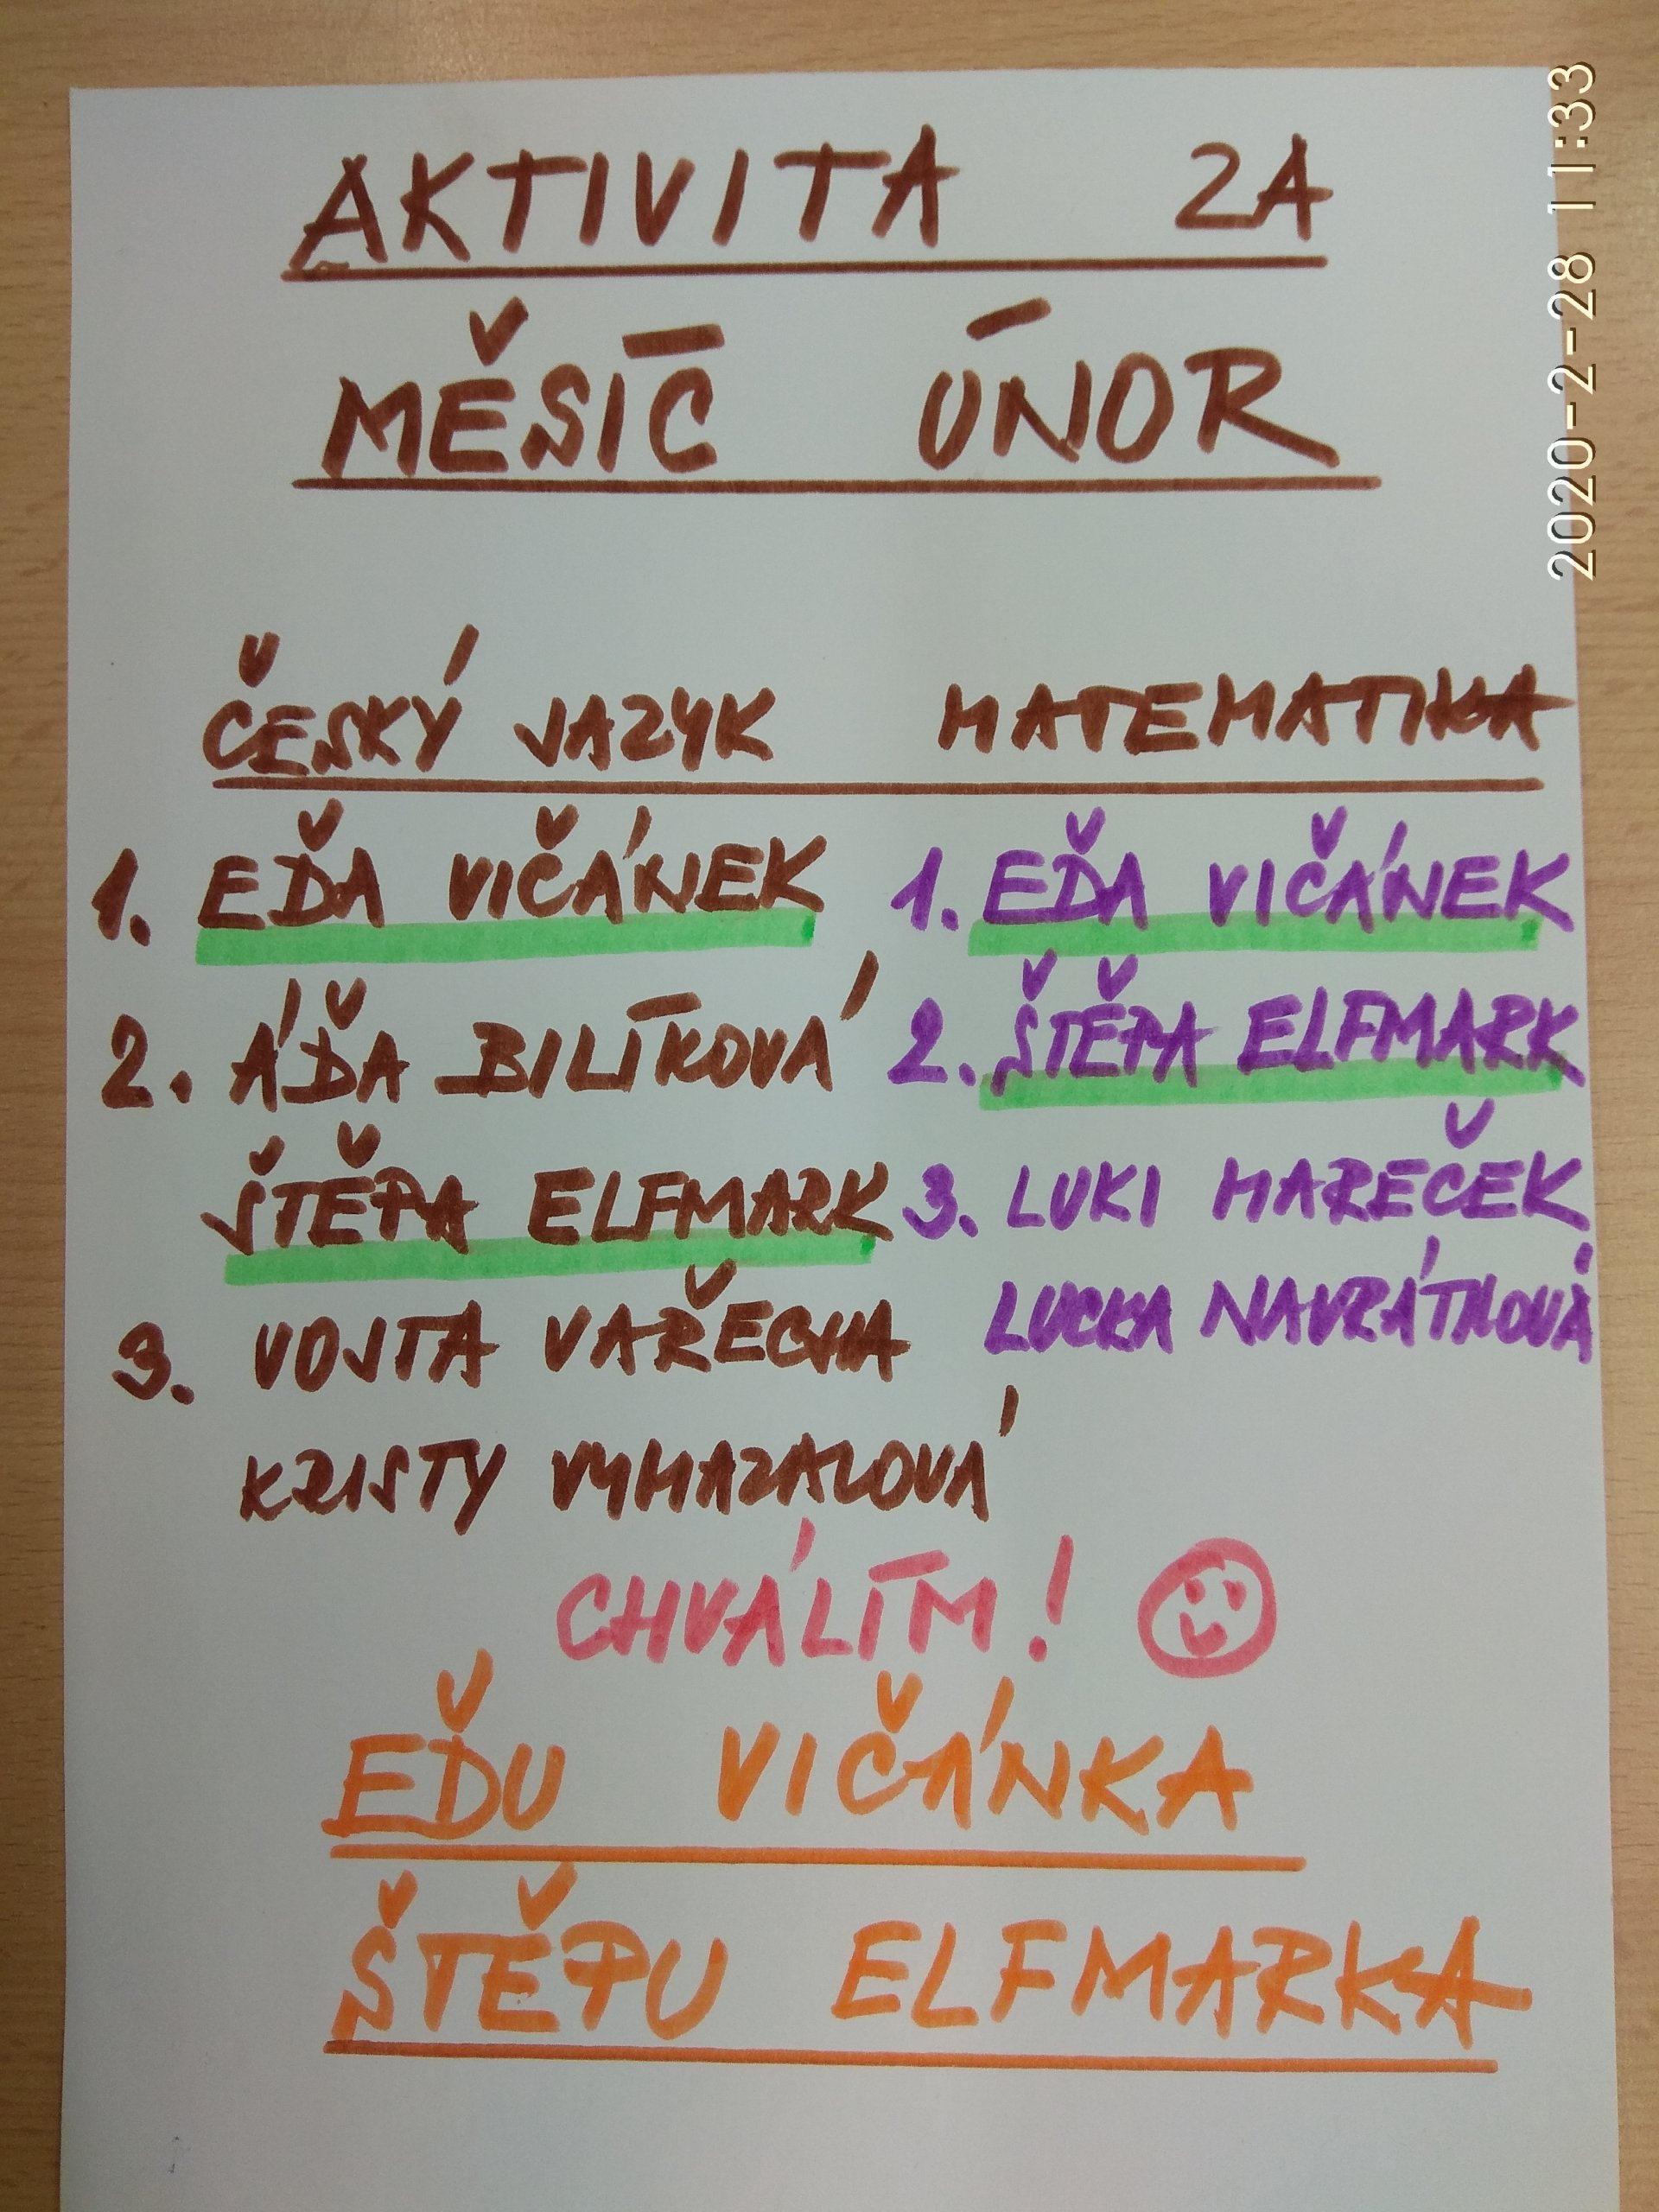 AKTIVITA ZA
MĚSÍC ÚNOR
ČESKÝ JAZYK
1. EĎA VIČÁNEK
2. ÁĎA BILÍKOVÁ
ŠTĚPA ELFMARK
3. VOJTA VAŘECHA
KRISTY VYMAZALOVÁ
MATEMATIKA
1. EĎA VIČÁNEK
2. ŠTĚPA ELFMARK
3. LUKI MAREČEK
LUCKA NAVRÁTKOVÁ
CHVÁLÍM!
EĎU VIČÁNKA
ŠTĚPU ELFMARKA
2020-2-28 11:33